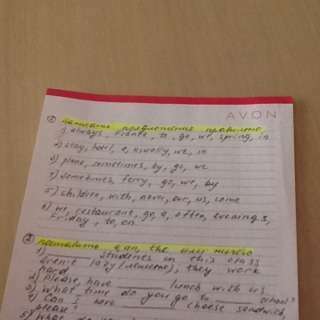 AVON
① написать предложения правильно
1. always, plane, to, go, we, spring, in
2) stay, hotel, a, usually, we, in
3) plane, sometimes, by, go, we
4) sometimes, ferry, go, we, by
5) children, with, us, some
6) we, restaurant, go, a, often, evenings,
Friday, to, on
② can, the
1) students in this class
aren't lazy, they work
hard
2) please, have ____ lunch with us
3) What time do you go to ____ school?
4) Can I have ____ cheese sandwich,
5) What